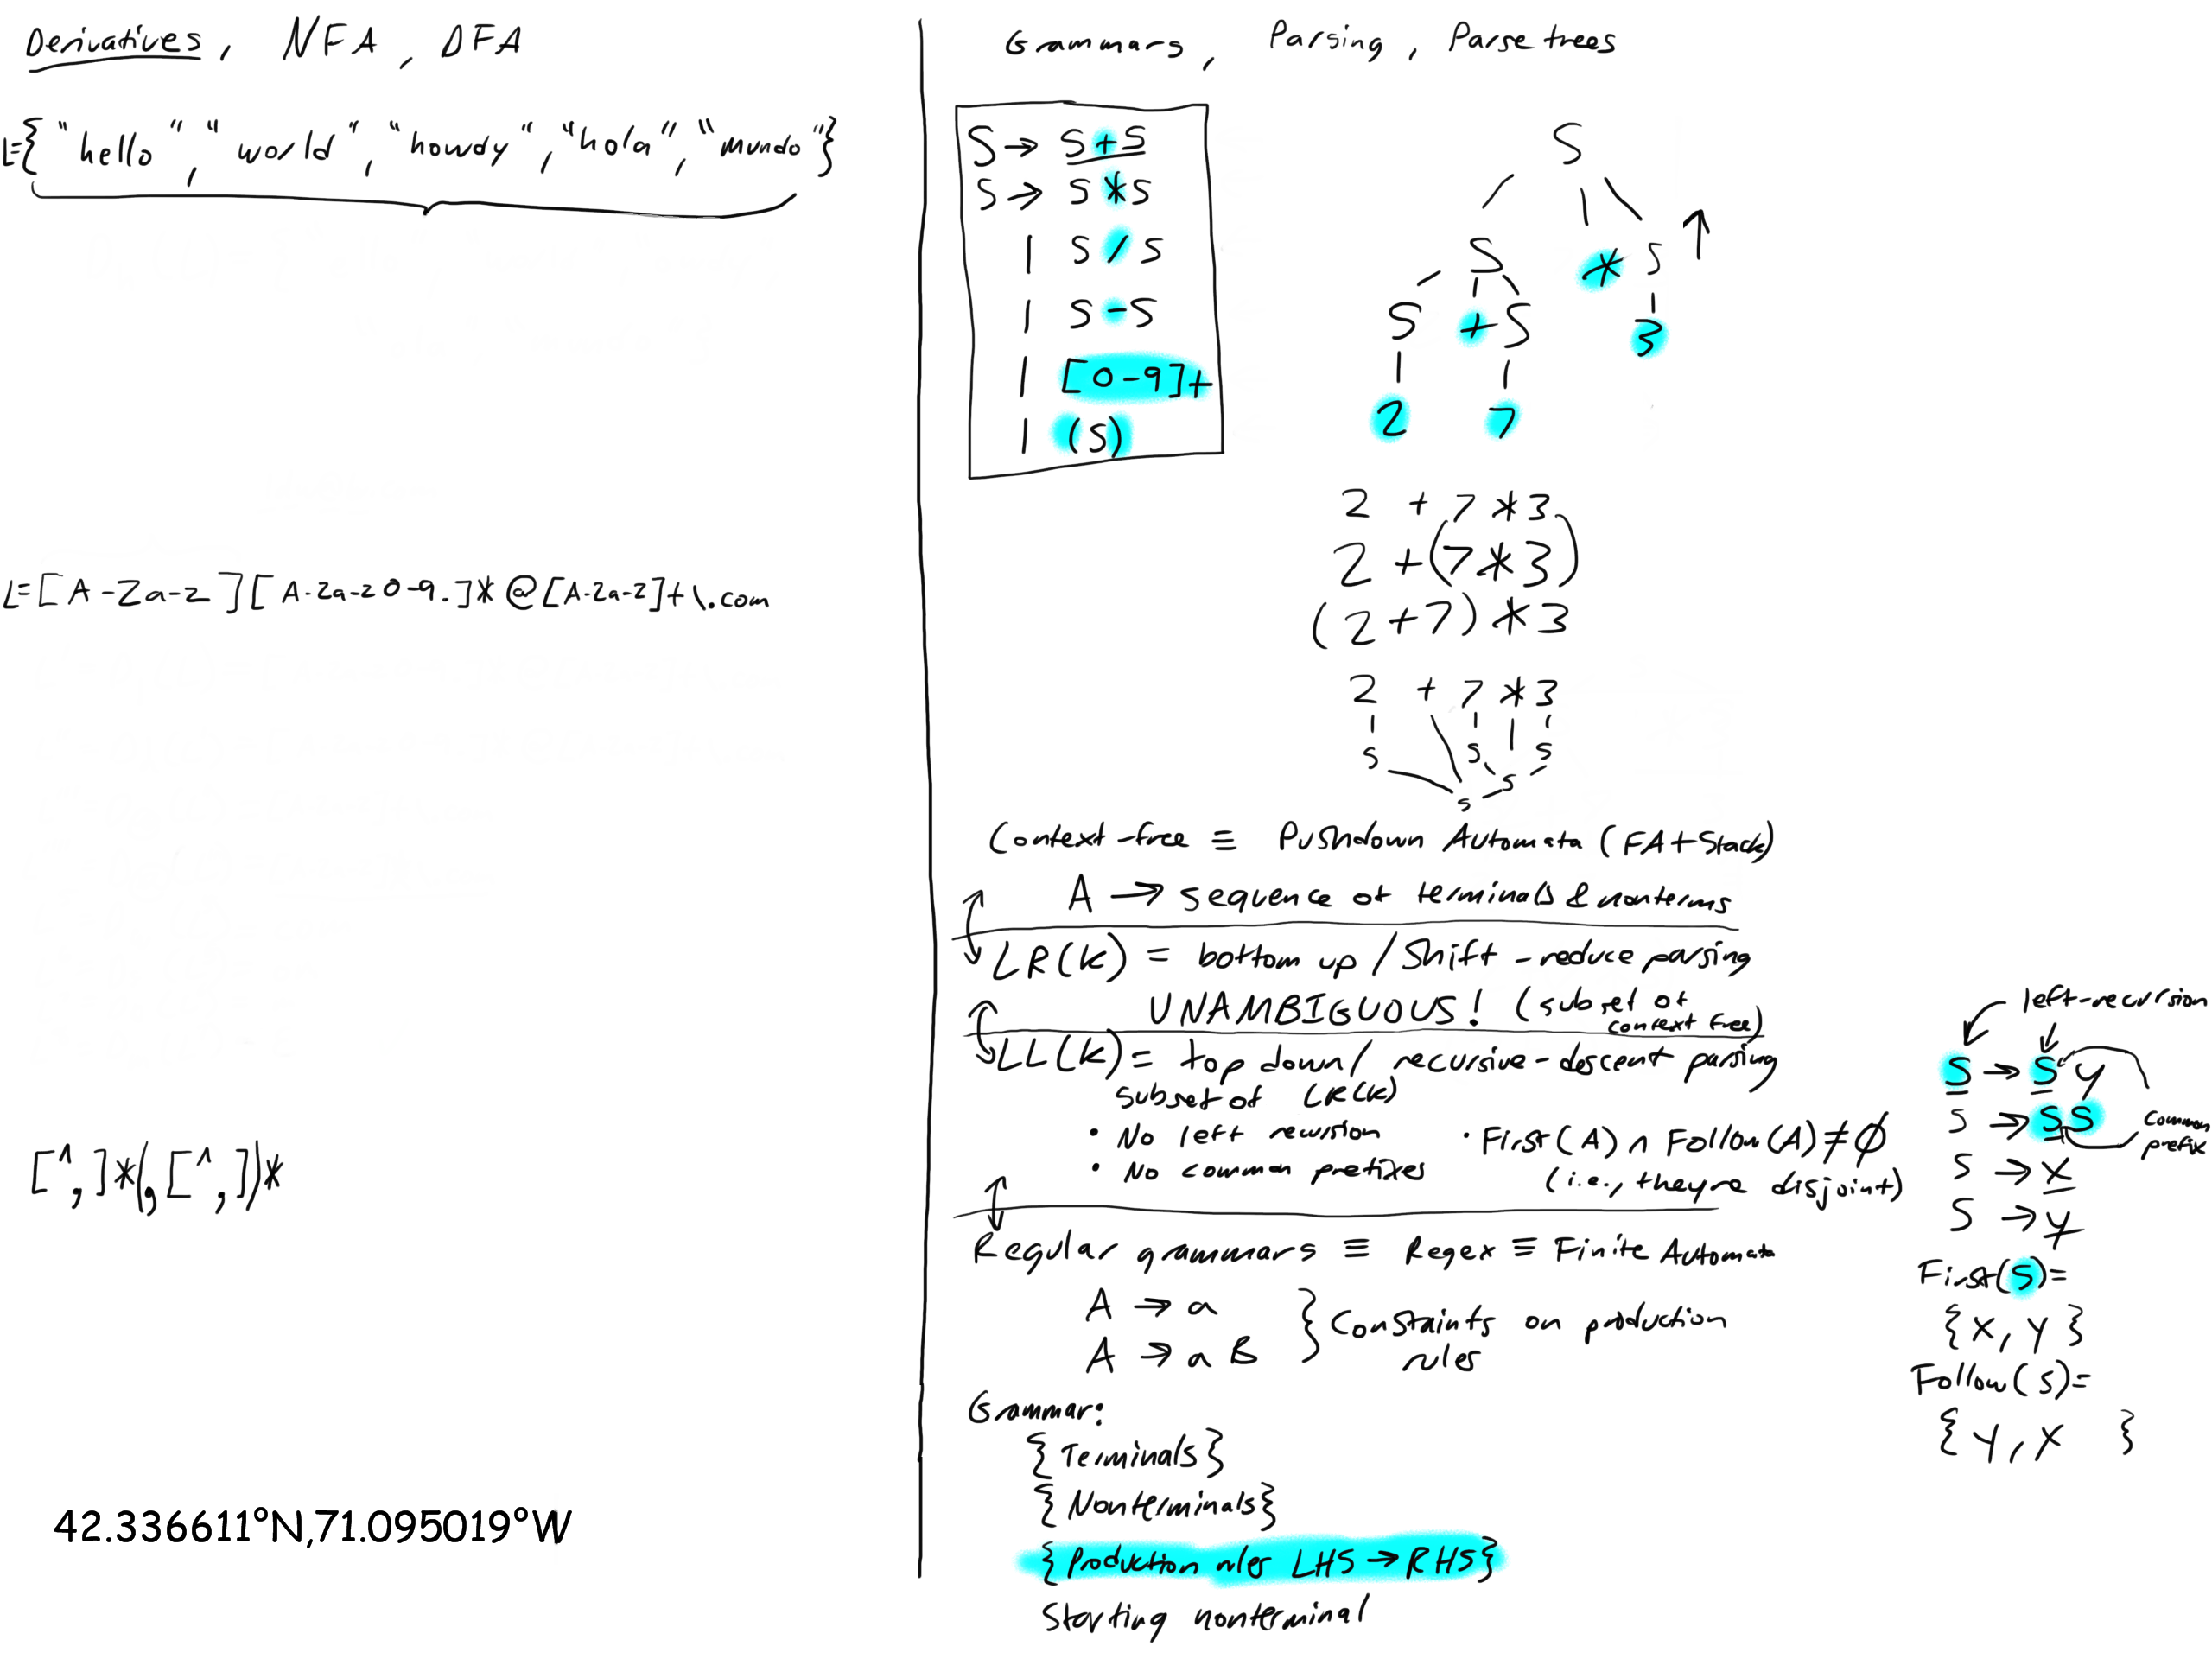 Derivatives, NFA, DFA
L={"hello", "world", "howdy", "hola", "mundo"}
L=[A-Za-z][A-Za-z0-9.]*@[A-Za-z]+\.com
[^,]*(,[^,])*
42.336611°N,71.095019°W
Grammars, Parsing, Parse trees
S → S+S
S → S*S
| S/S
| S-S
| [0-9]+
| (S)
S
S * S
S + S 3
2 7
2 + 7 * 3
2 + (7 * 3)
(2+7) * 3
2 + 7 * 3
S S S
S
S
Context-free ≡ Pushdown Automata (FA+Stack)
A → sequence of terminals & nonterms
LR(k) = bottom up / Shift-reduce parsing
UNAMBIGUOUS! (subset of
context free)
LL(k) = top down / recursive-descent parsing
subset of LR(k)
• No left recursion
• No common prefixes
• First(A) ∩ Follow(A) ≠ ∅
(i.e., they're disjoint)
Regular grammars ≡ Regex ≡ Finite Automata
A → a
A → a B
} Constaints on production
rules
Grammar:
{Terminals}
{Nonterminals}
{Production rules LHS → RHS}
Starting nonterminal
left-recursion
S → S y
S → S S
common
prefix
S → x
S → y
First(S)=
{x, y}
Follow(S)=
{y, x }